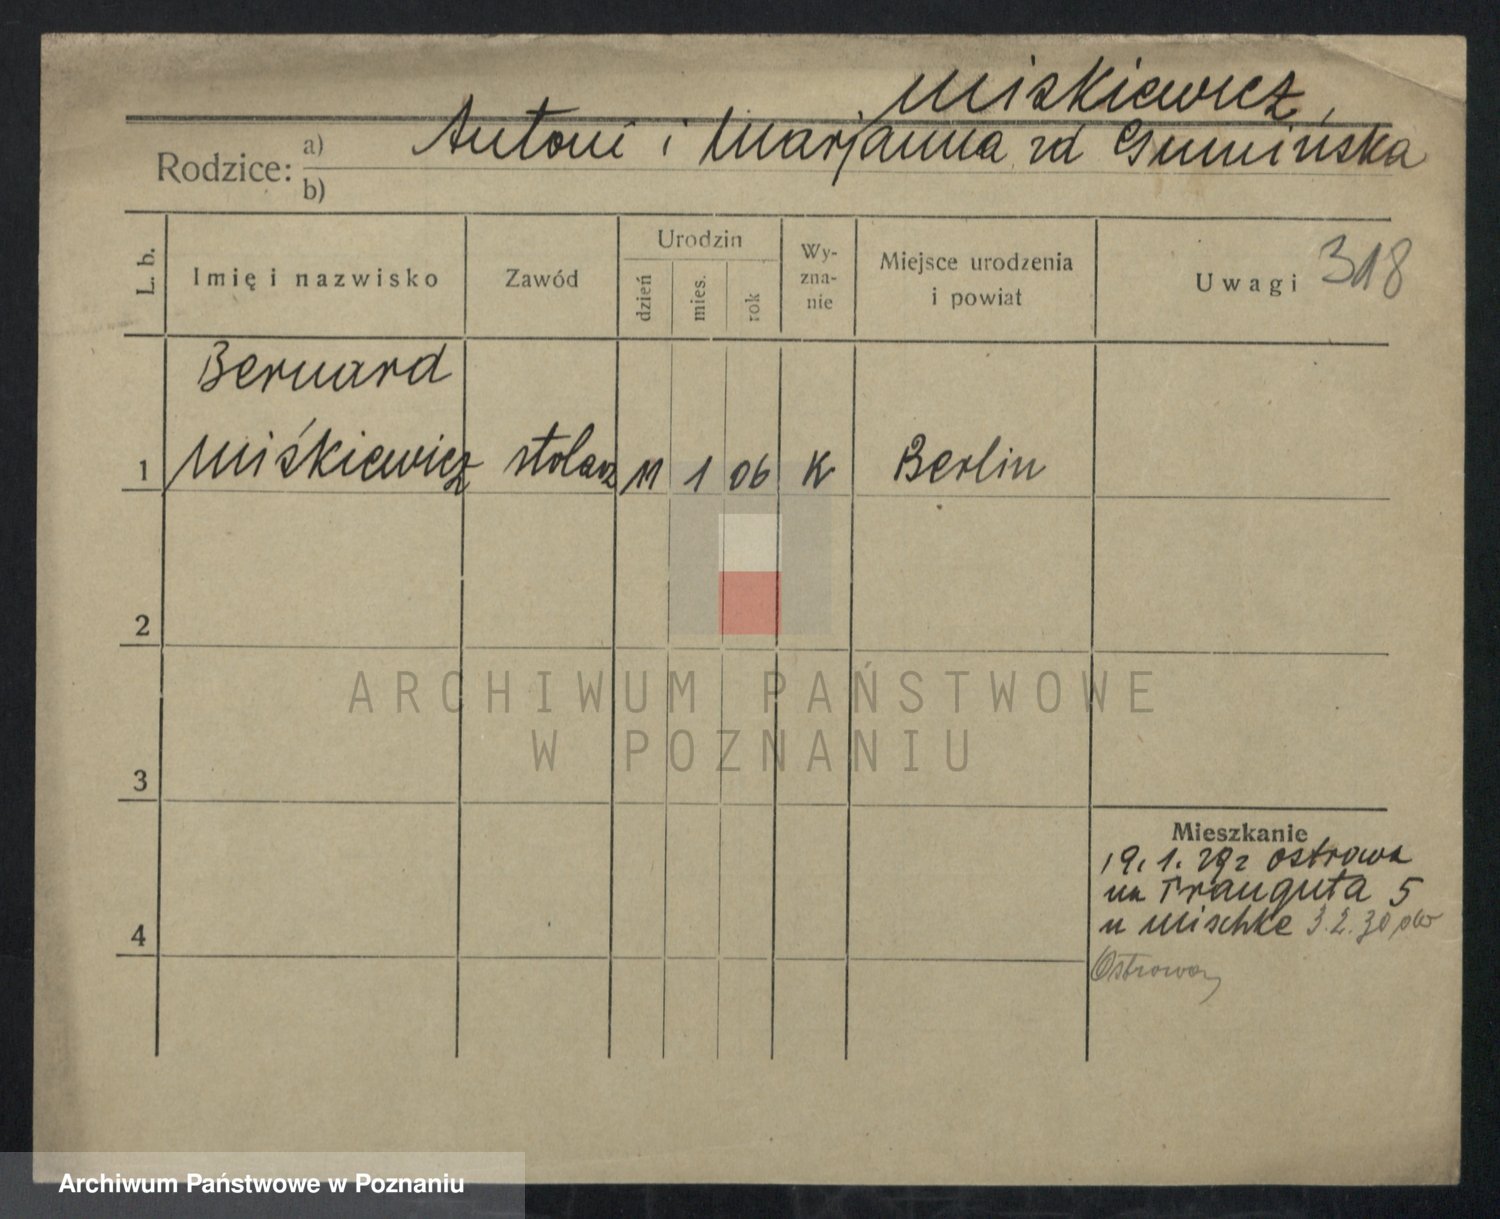 Miskiewicz
Rodzice: a) Antoni i Marjanna zd Gumińska
b)
L. b.
Imię i nazwisko
Zawód
Urodzin
dzień
mies.
rok
Wy-
zna-
nie
Miejsce urodzenia
i powiat
Uwagi
318
Bernard
1 Miśkiewicz stolarz 11 1 06 K Berlin
2
3
4
Mieszkanie
19. 1. 29 z Ostrowa
na Trauguta 5
u Mischke 3.2.30 do
Ostrowa
ARCHIWUM PAŃSTWOWE
W POZNANIU
Archiwum Państwowe w Poznaniu